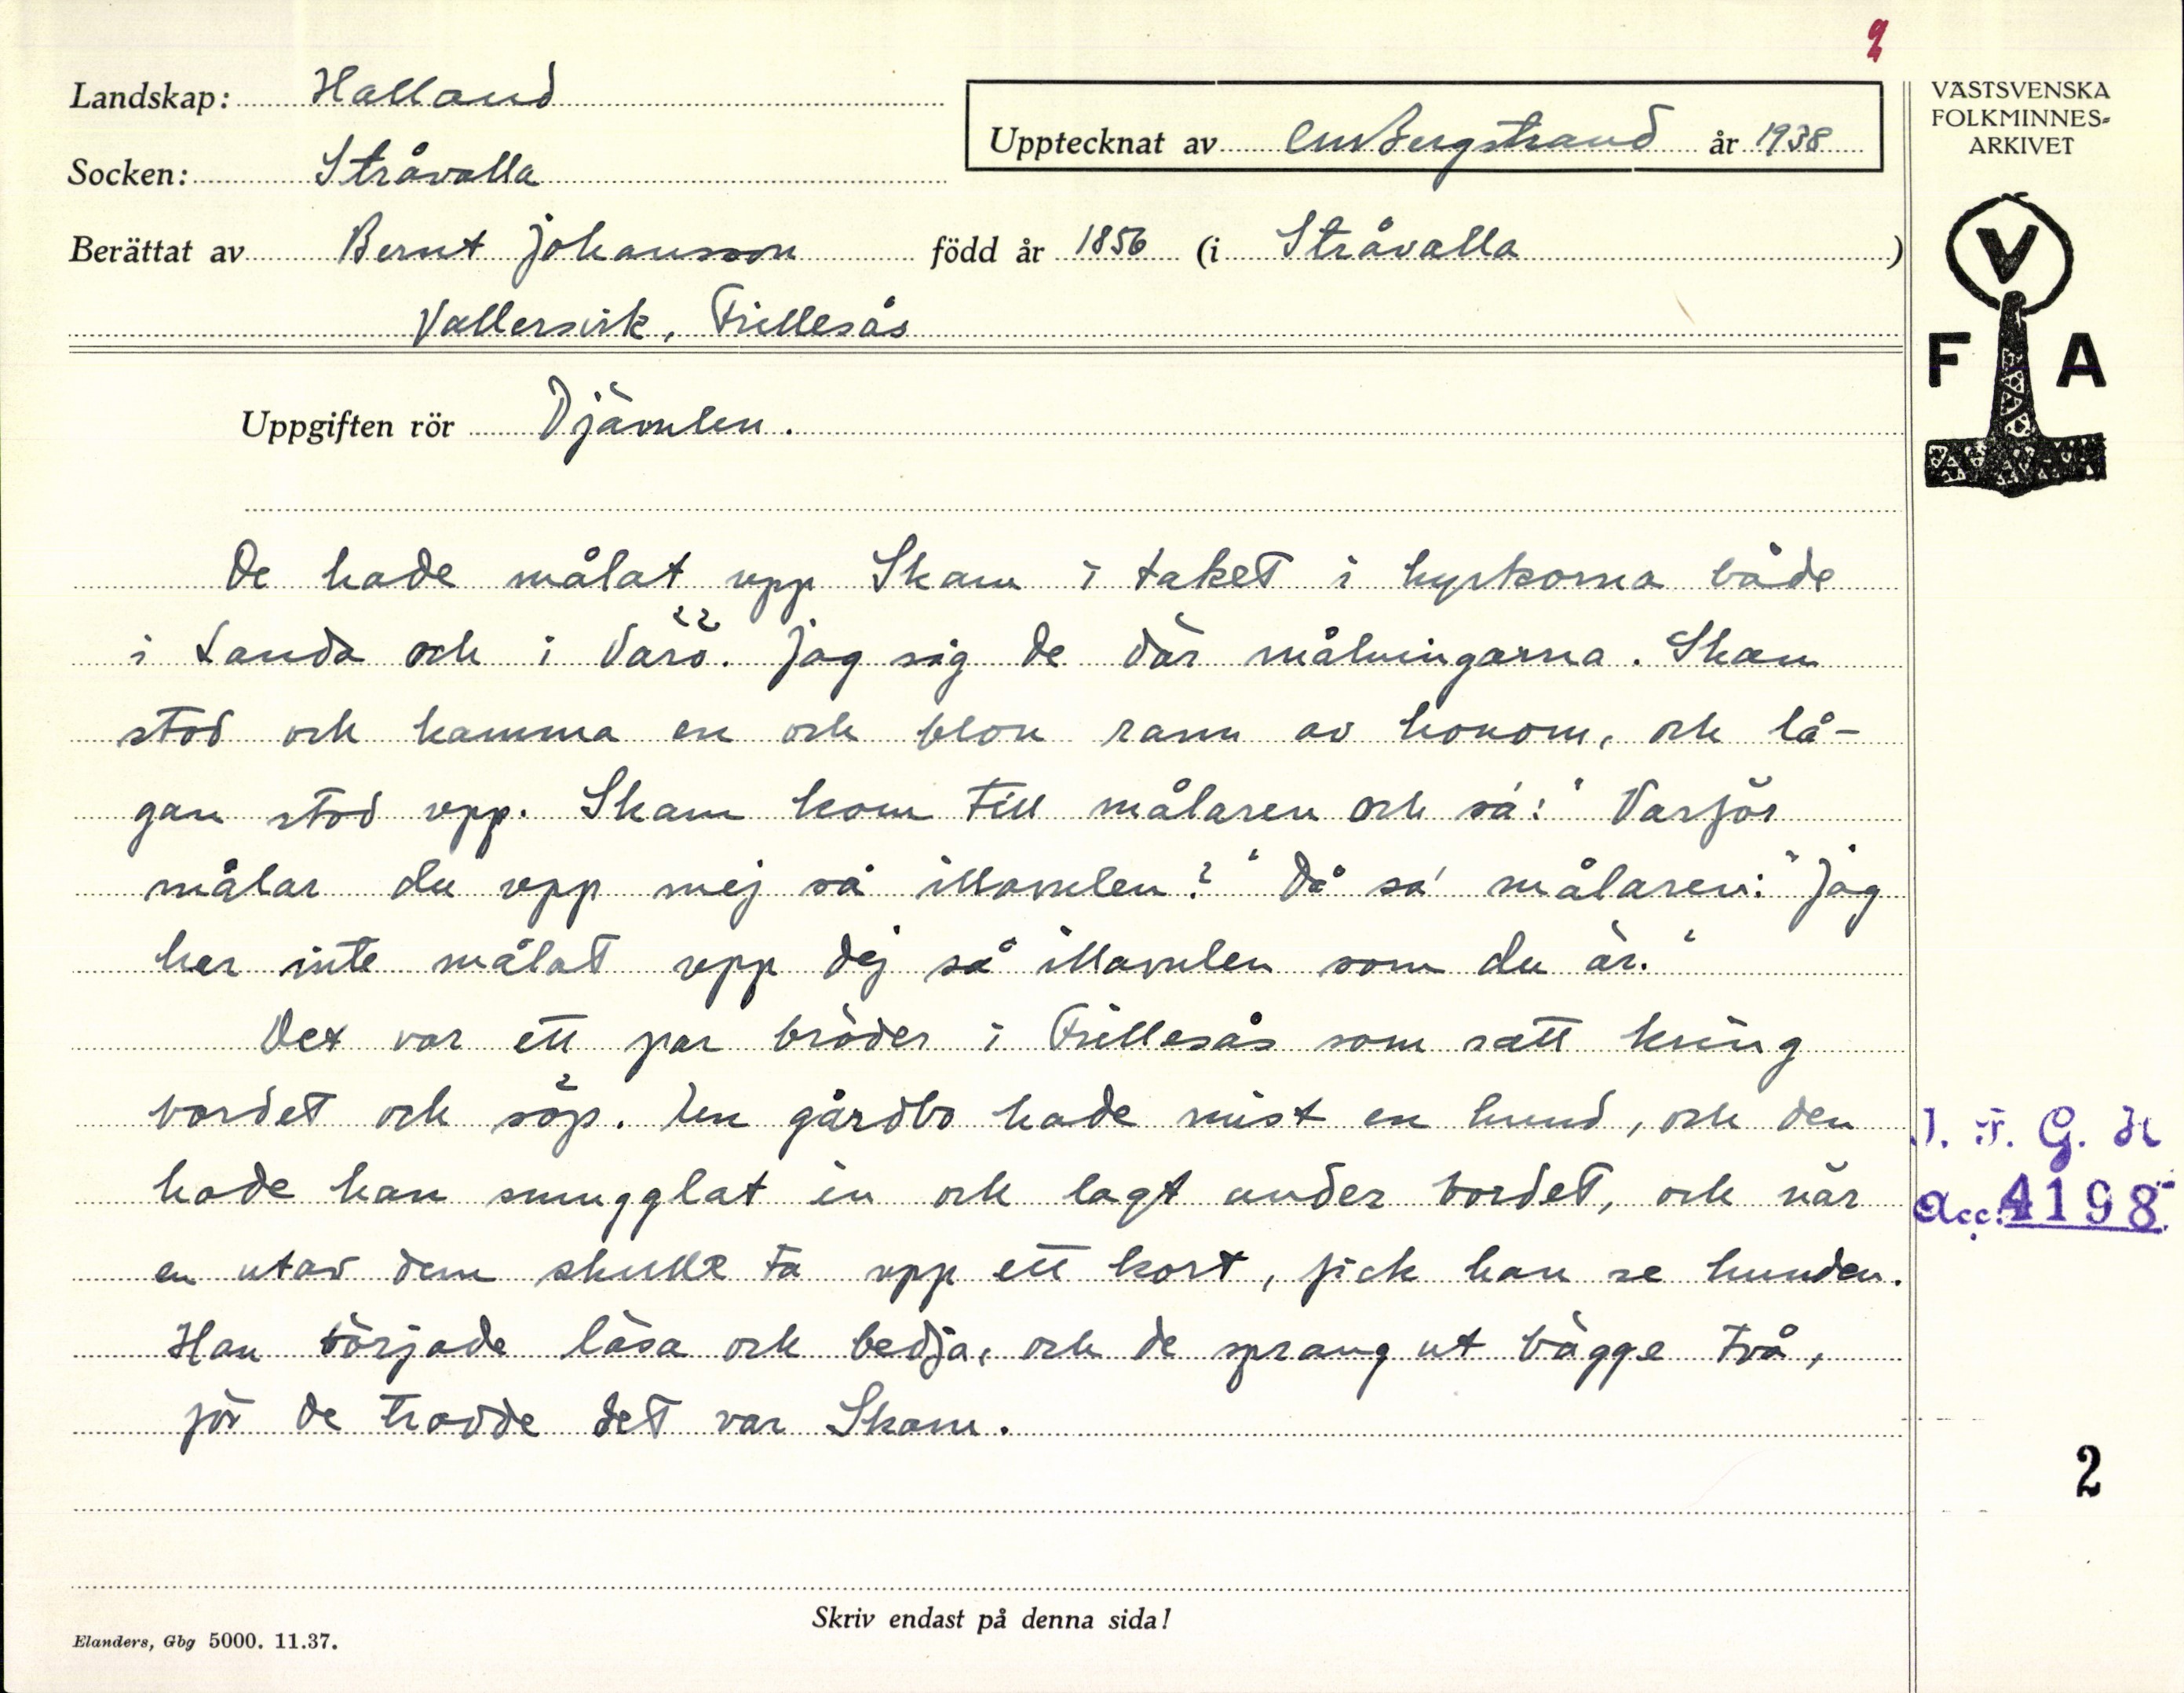 2
Landskap: Halland
Upptecknat av CMBergstrand år 1938
Socken: Stråvalla
Berättat av Bernt Johansson född år 1856 (i Stråvalla)
Vallersvik, Frillesås
VÄSTSVENSKA
FOLKMINNES-
ARKIVET
V
F A
Uppgiften rör Djävulen.
De hade målat upp Skam i taket i kyrkorna både
i Landa och i Värö. Jag sig de där målningarna. Skam
stod och kamma en och blon rann av honom, och lå-
gan stod upp. Skam kom till målaren och sa: "Varför
målar du upp mej så illavulen?" Då sa' målaren: "Jag
har inte målat upp dej så illavulen som du är."
Det var ett par bröder i Frillesås som satt kring
bordet och söp. En gårdbo hade mist en hund, och den
hade han smugglat in och lagt under bordet, och när
en utav dem skulle ta upp ett kort, fick han se hunden.
Han började läsa och bedja, och de sprang ut bägge två,
för de trodde det var Skam.
I. F. G. H
Acc: 4198
2
Skriv endast på denna sida!
Elanders, Gbg 5000. 11.37.